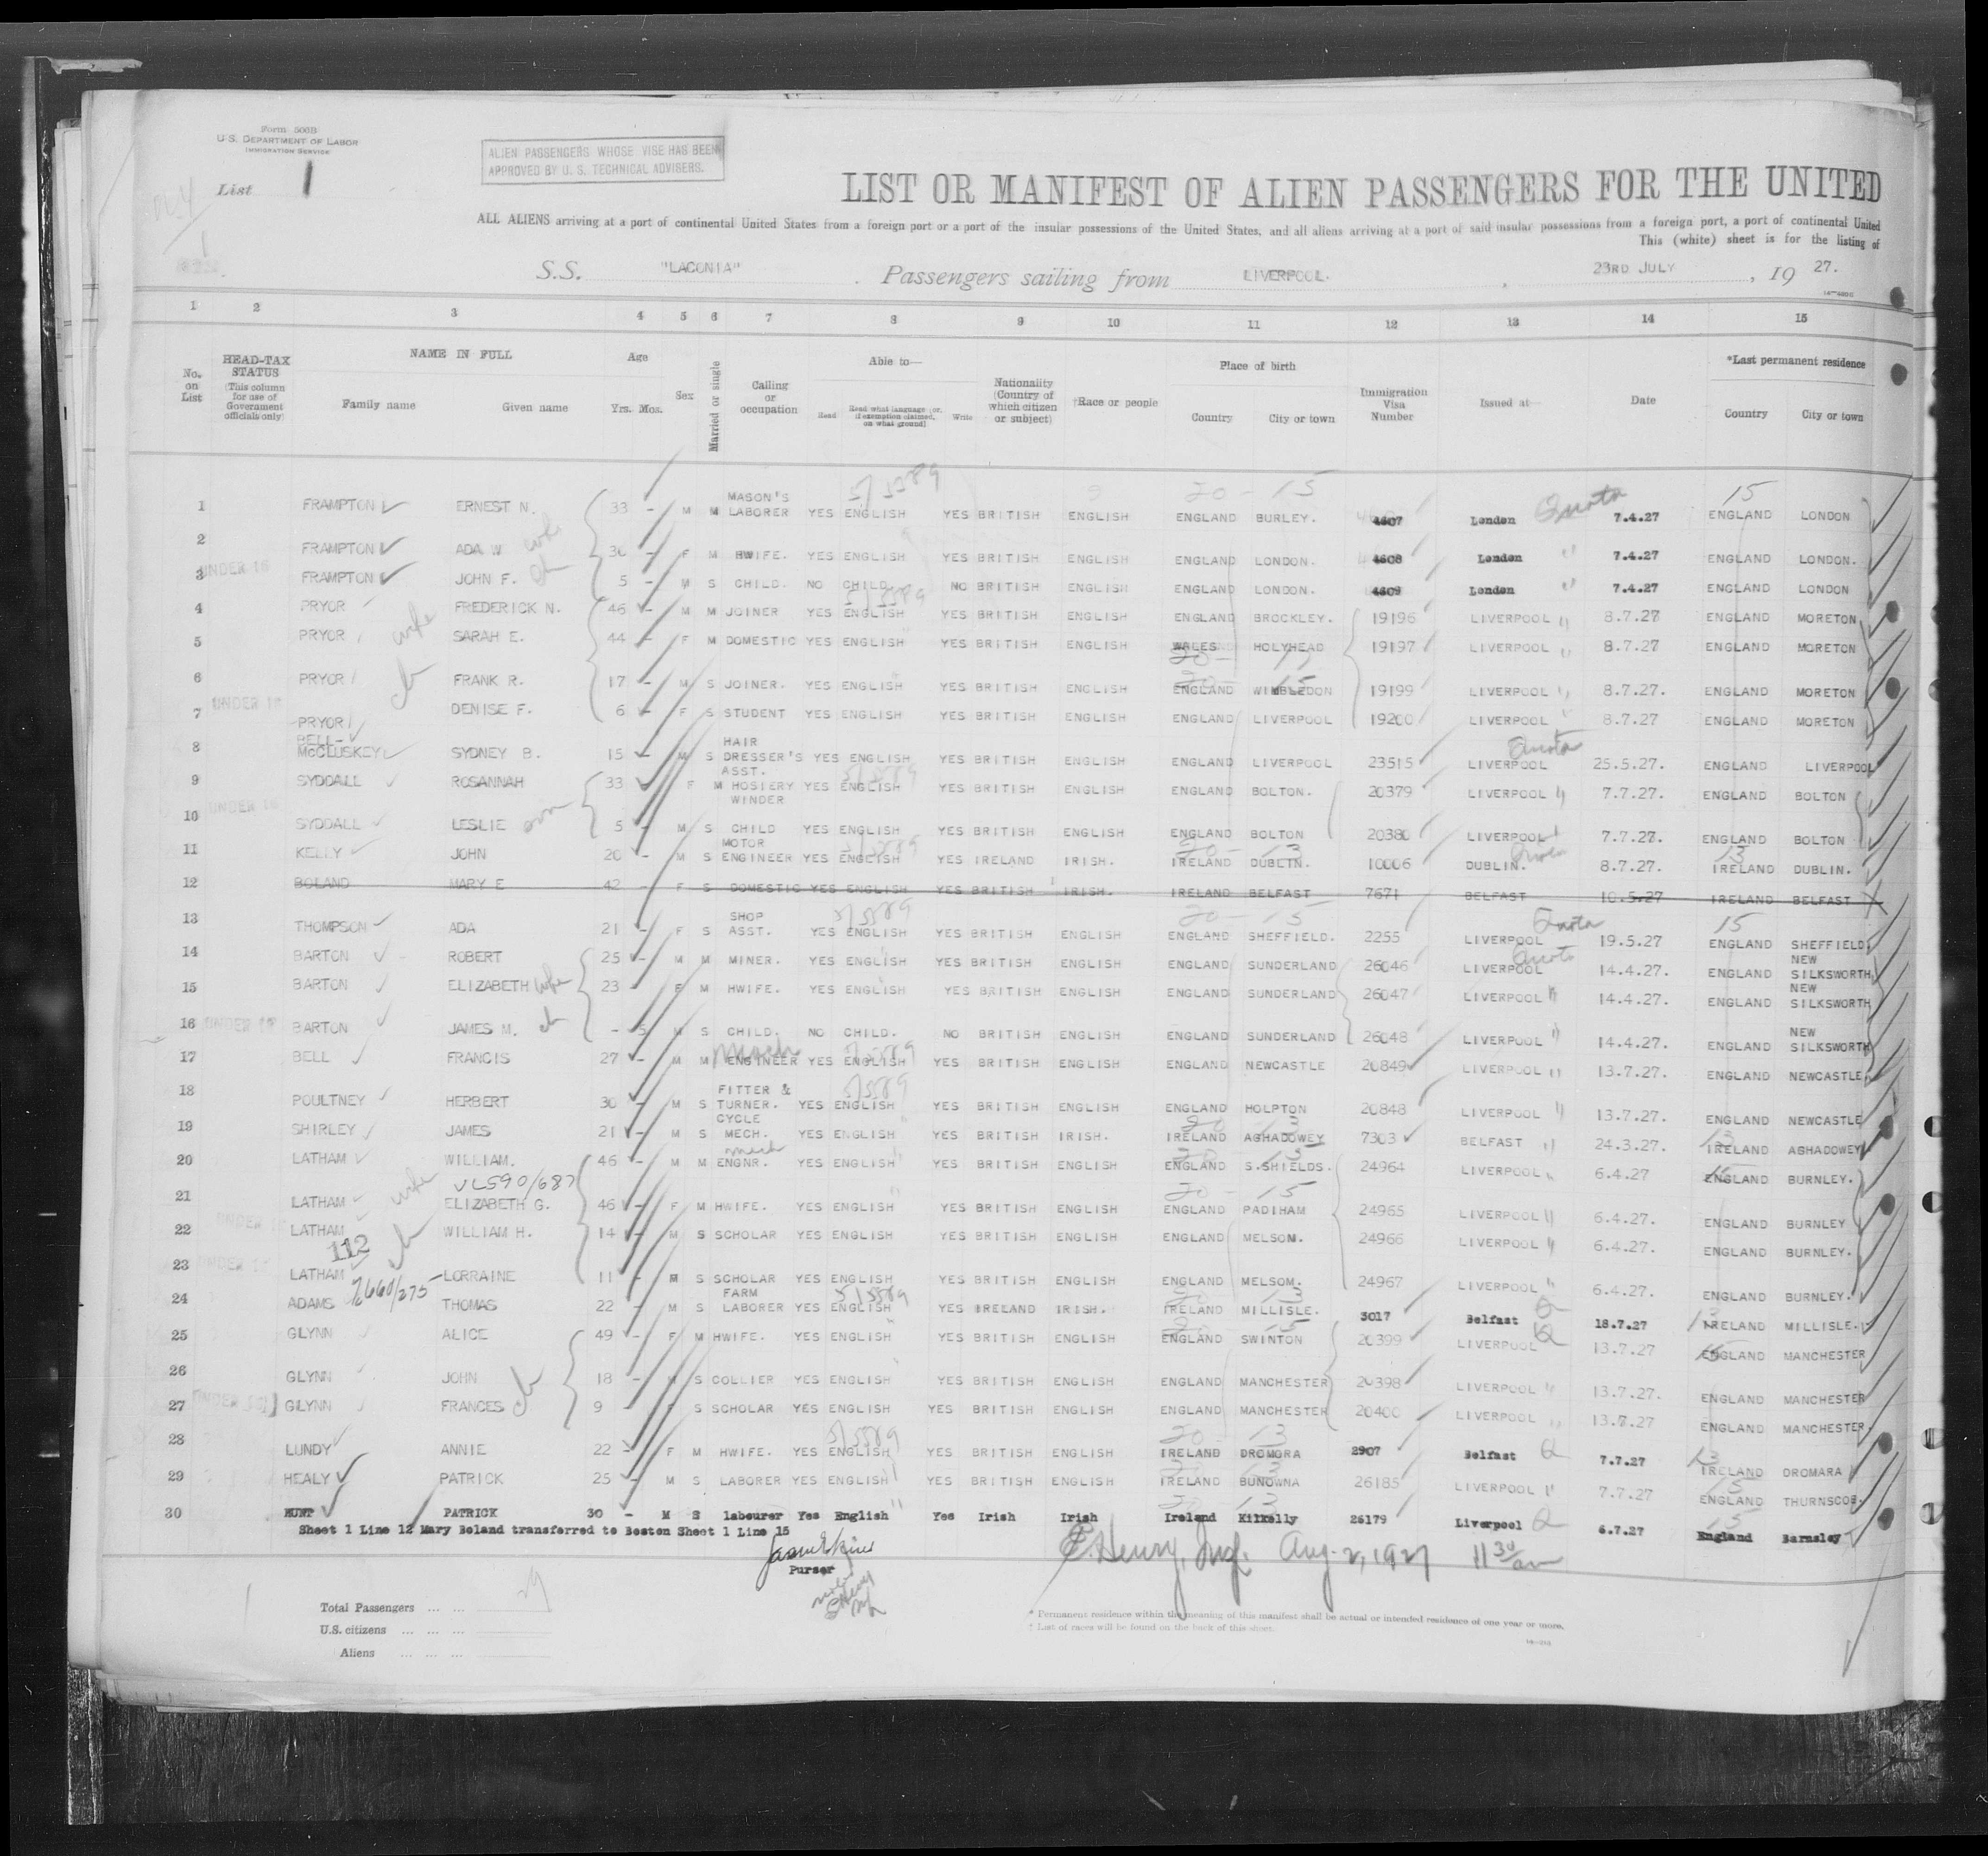 Form 500B
U.S. DEPARTMENT OF LABOR
IMMIGRATION SERVICE
List 1
ALIEN PASSENGERS WHOSE VISE HAS BEEN
APPROVED BY U. S. TECHNICAL ADVISERS.
LIST OR MANIFEST OF ALIEN PASSENGERS FOR THE UNITED
ALL ALIENS arriving at a port of continental United States from a foreign port or a port of the insular possessions of the United States, and all aliens arriving at a port of said insular possessions from a foreign port, a port of continental United
This (white) sheet is for the listing of
S.S. "LACONIA" Passengers sailing from LIVERPOOL. 23RD JULY , 19 27.
1 2 3 4 5 6 7 8 9 10 11 12 13 14 15
No. on List
HEAD-TAX STATUS (This column for use of Government officials only)
NAME IN FULL Family name Given name
Age Yrs. Mos.
Sex
Married or single
Calling or occupation
Able to— Read Read what language (or, if exemption claimed, on what ground) Write
Nationality (Country of which citizen or subject)
†Race or people
Place of birth Country City or town
Immigration Visa Number
Issued at—
Date
*Last permanent residence Country City or town
1 FRAMPTON ERNEST N. 33 - M M MASON'S LABORER YES ENGLISH YES BRITISH ENGLISH ENGLAND BURLEY. 4607 London Quota 7.4.27 ENGLAND LONDON
2 FRAMPTON ADA W wife - F M HWIFE. YES ENGLISH YES BRITISH ENGLISH ENGLAND LONDON. 4608 London 7.4.27 ENGLAND LONDON.
UNDER 16
3 FRAMPTON JOHN F. ch 5 - M S CHILD. NO CHILD NO BRITISH ENGLISH ENGLAND LONDON. 4609 London 7.4.27 ENGLAND LONDON
4 PRYOR FREDERICK N. 46 - M M JOINER YES ENGLISH YES BRITISH ENGLISH ENGLAND BROCKLEY. 19196 LIVERPOOL 8.7.27 ENGLAND MORETON
5 PRYOR wife SARAH E. 44 - F M DOMESTIC YES ENGLISH YES BRITISH ENGLISH WALES HOLYHEAD 19197 LIVERPOOL 8.7.27 ENGLAND MORETON
6 PRYOR ch FRANK R. 17 - M S JOINER. YES ENGLISH YES BRITISH ENGLISH ENGLAND WIMBLEDON 19199 LIVERPOOL 8.7.27. ENGLAND MORETON
UNDER 16
7 PRYOR DENISE F. 6 - F S STUDENT YES ENGLISH YES BRITISH ENGLISH ENGLAND LIVERPOOL 19200 LIVERPOOL 8.7.27 ENGLAND MORETON
8 BELL- McCLUSKEY SYDNEY B. 15 - M S HAIR DRESSER'S ASST. YES ENGLISH YES BRITISH ENGLISH ENGLAND LIVERPOOL 23515 LIVERPOOL Quota 25.5.27. ENGLAND LIVERPOOL
9 SYDDALL ROSANNAH 33 F M HOSIERY WINDER YES ENGLISH YES BRITISH ENGLISH ENGLAND BOLTON. 20379 LIVERPOOL 7.7.27. ENGLAND BOLTON
UNDER 16
10 SYDDALL LESLIE son 5 - M S CHILD YES ENGLISH YES BRITISH ENGLISH ENGLAND BOLTON 20380 LIVERPOOL 7.7.27. ENGLAND BOLTON
11 KELLY JOHN 20 - M S MOTOR ENGINEER YES ENGLISH YES IRELAND IRISH. IRELAND DUBLIN. 10006 DUBLIN. 8.7.27. IRELAND DUBLIN.
12 BOLAND MARY E 42 - F S DOMESTIC YES ENGLISH YES BRITISH IRISH. IRELAND BELFAST 7671 BELFAST 10.5.27 IRELAND BELFAST
13 THOMPSON ADA 21 - F S SHOP ASST. YES ENGLISH YES BRITISH ENGLISH ENGLAND SHEFFIELD. 2255 LIVERPOOL Quota 19.5.27 ENGLAND SHEFFIELD.
14 BARTON ROBERT 25 - M M MINER. YES ENGLISH YES BRITISH ENGLISH ENGLAND SUNDERLAND 26046 LIVERPOOL Quota 14.4.27. ENGLAND NEW SILKSWORTH
15 BARTON ELIZABETH wife 23 - F M HWIFE. YES ENGLISH YES BRITISH ENGLISH ENGLAND SUNDERLAND 26047 LIVERPOOL 14.4.27. ENGLAND NEW SILKSWORTH
16 UNDER 16 BARTON JAMES M. ch - 5 M S CHILD. NO CHILD. NO BRITISH ENGLISH ENGLAND SUNDERLAND 26048 LIVERPOOL 14.4.27. ENGLAND NEW SILKSWORTH
17 BELL FRANCIS 27 - M M Mech ENGINEER YES ENGLISH YES BRITISH ENGLISH ENGLAND NEWCASTLE 20849 LIVERPOOL 13.7.27. ENGLAND NEWCASTLE
18 POULTNEY HERBERT 30 - M S FITTER & TURNER. YES ENGLISH YES BRITISH ENGLISH ENGLAND HOLPTON 20848 LIVERPOOL 13.7.27. ENGLAND NEWCASTLE
19 SHIRLEY JAMES 21 - M S CYCLE MECH. YES ENGLISH YES BRITISH IRISH. IRELAND AGHADOWEY 7303 BELFAST 24.3.27. IRELAND AGHADOWEY
20 LATHAM WILLIAM. 46 - M M mech ENGNR. YES ENGLISH YES BRITISH ENGLISH ENGLAND S.SHIELDS. 24964 LIVERPOOL 6.4.27 ENGLAND BURNLEY.
VL590/687
21 LATHAM wife ELIZABETH G. 46 - F M HWIFE. YES ENGLISH YES BRITISH ENGLISH ENGLAND PADIHAM 24965 LIVERPOOL 6.4.27. ENGLAND BURNLEY
UNDER 16
22 LATHAM ch WILLIAM H. 14 - M S SCHOLAR YES ENGLISH YES BRITISH ENGLISH ENGLAND MELSOM. 24966 LIVERPOOL 6.4.27. ENGLAND BURNLEY.
112
23 LATHAM LORRAINE 11 - M S SCHOLAR YES ENGLISH YES BRITISH ENGLISH ENGLAND MELSOM. 24967 LIVERPOOL 6.4.27. ENGLAND BURNLEY.
24 ADAMS THOMAS 22 - M S FARM LABORER YES ENGLISH YES IRELAND IRISH. IRELAND MILLISLE. 3017 Belfast Q 18.7.27 IRELAND MILLISLE.
25 GLYNN ALICE 49 - F M HWIFE. YES ENGLISH YES BRITISH ENGLISH ENGLAND SWINTON 20399 LIVERPOOL Q 13.7.27 ENGLAND MANCHESTER
26 GLYNN JOHN 18 - M S COLLIER YES ENGLISH YES BRITISH ENGLISH ENGLAND MANCHESTER 20398 LIVERPOOL 13.7.27. ENGLAND MANCHESTER
27 GLYNN FRANCES ch 9 - F S SCHOLAR YES ENGLISH YES BRITISH ENGLISH ENGLAND MANCHESTER 20400 LIVERPOOL 13.7.27 ENGLAND MANCHESTER.
28 LUNDY ANNIE 22 - F M HWIFE. YES ENGLISH YES BRITISH ENGLISH IRELAND DROMORA 2907 Belfast Q 7.7.27 IRELAND DROMARA
29 HEALY PATRICK 25 - M S LABORER YES ENGLISH YES BRITISH ENGLISH IRELAND BUNOWNA 26185 LIVERPOOL 7.7.27 ENGLAND THURNSCOE.
30 HUNT PATRICK 30 - M S labourer Yes English Yes Irish Irish Ireland Kilkelly 26179 Liverpool Q 6.7.27 England Barnsley
Sheet 1 Line 12 Mary Boland transferred to Boston Sheet 1 Line 15
Purser
Henry, Insp. Aug. 2, 1927 11 30 am
Total Passengers ... ... 29
U.S. citizens ... ... ...
Aliens ... ... ...
* Permanent residence within the meaning of this manifest shall be actual or intended residence of one year or more.
† List of races will be found on the back of this sheet.